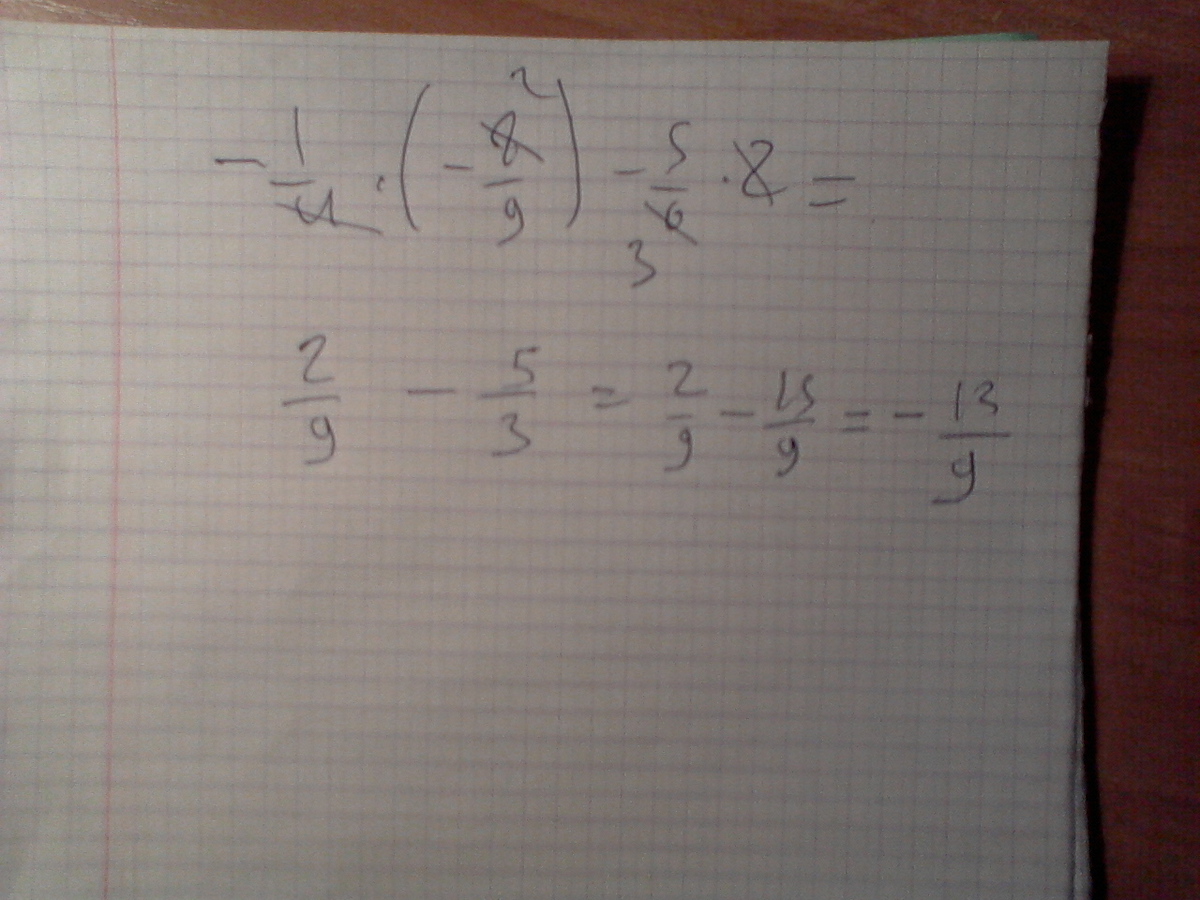 - 1/4 · (- 8/9) 2 - 5/6 3 · 2 =
2/9 - 5/3 = 2/9 - 15/9 = - 13/9